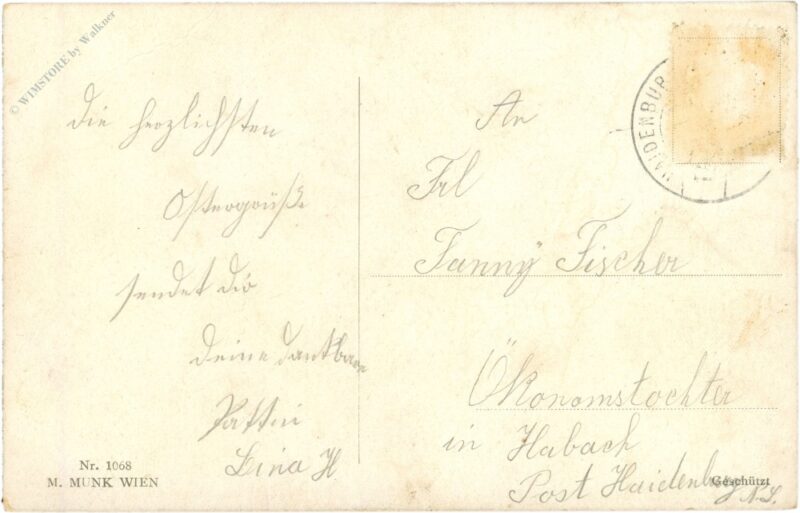 © WIMSTORE by Walkner
Die herzlichsten
Ostergrüße
sendet dir
deine dankbare
Pattin
Lina H
Nr. 1068
M. MUNK WIEN
HAIDENBUR
An
Frl
Fanny Fischer
Ökonomstochter
in Habach
Post Haidenburg N.B.
Geschützt